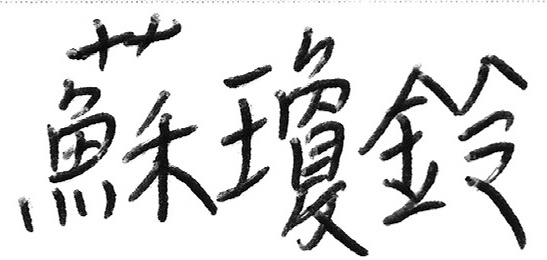 蘇瓊鈴